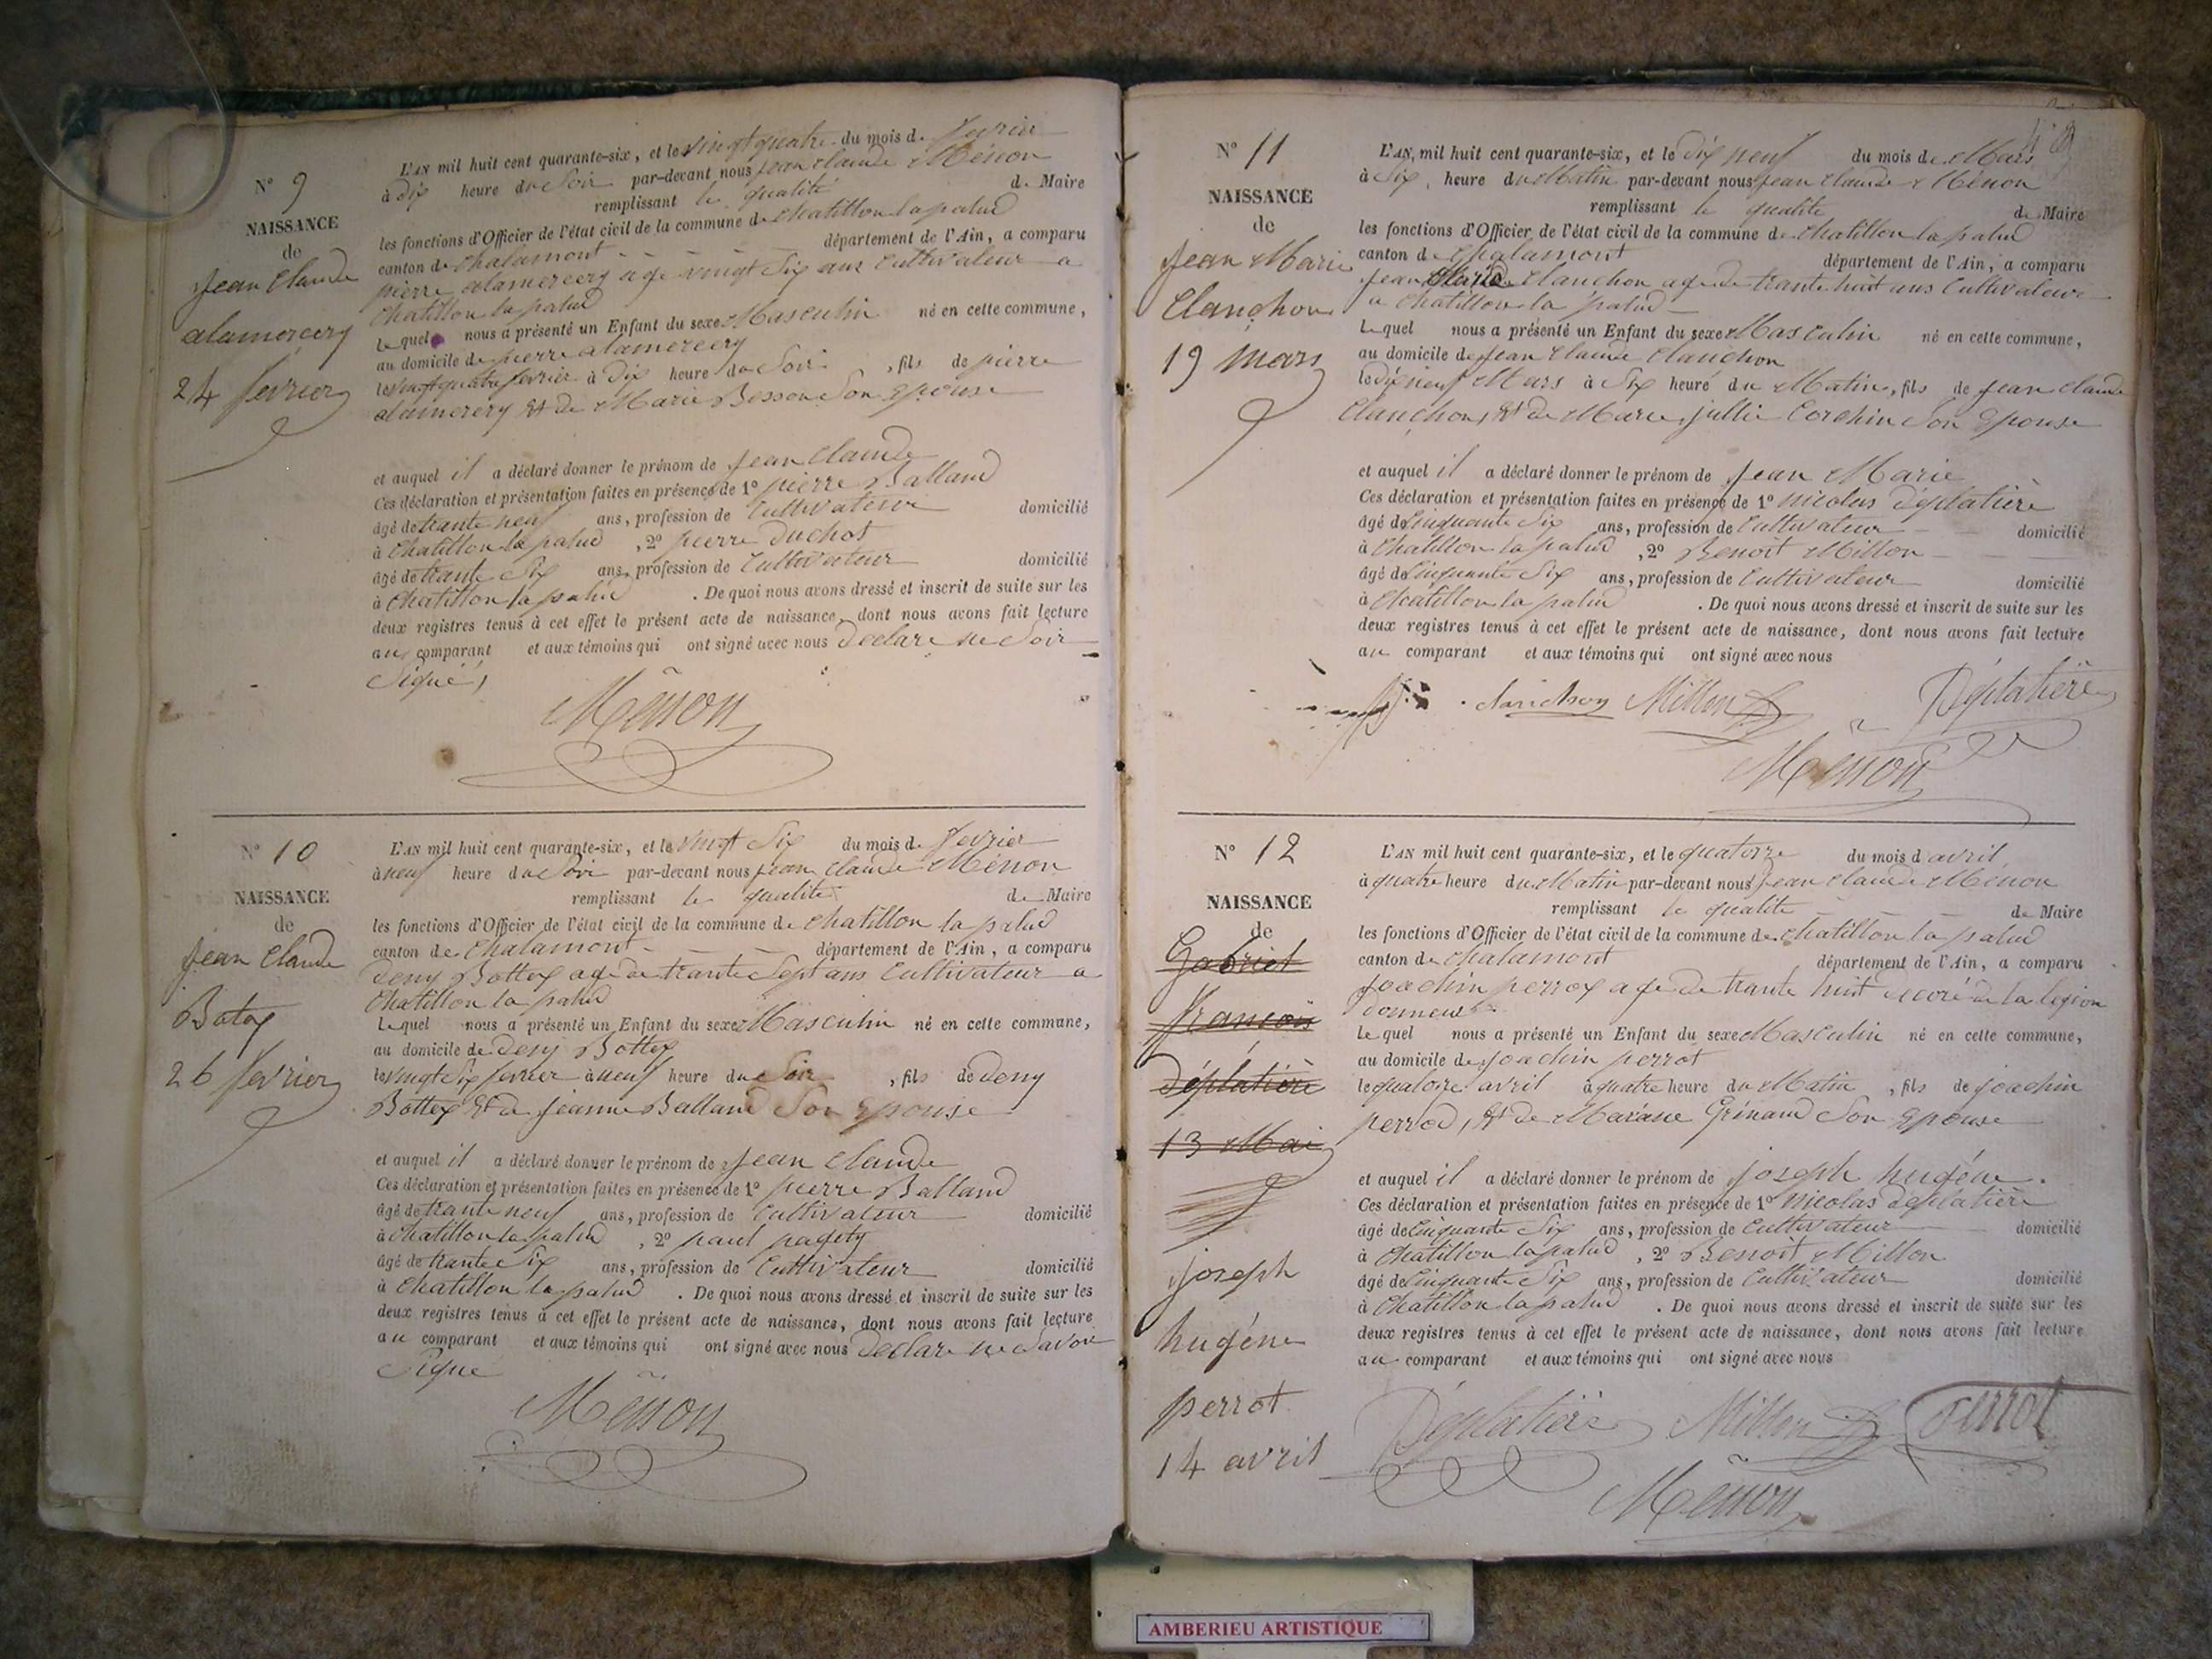 N° 9
NAISSANCE
de
jean Claude
alamercery
24 fevrier
L'AN mil huit cent quarante-six, et le vingt quatre du mois de fevrier
à dix heure du Soir par-devant nous jean Claude Ménon
remplissant la qualité de Maire
les fonctions d'Officier de l'état civil de la commune de Chatillon la palud
canton de Chalamont département de l'Ain, a comparu
pierre alamercery agé vingt Six ans Cultivateur a
Chatillon la palud
Lequel nous a présenté un Enfant du sexe Masculin né en cette commune,
au domicile de pierre alamercery
le vingt quatre fevrier à dix heure du Soir, fils de pierre
alamercery & de Marie Besson Son Epouse
et auquel il a déclaré donner le prénom de jean Claude
Ces déclaration et présentation faites en présence de 1° pierre Balland
âgé de trante neuf ans, profession de Cultivateur domicilié
à Chatillon la palud, 2° pierre duchot
âgé de trante Six ans, profession de Cultivateur domicilié
à Chatillon la palud. De quoi nous avons dressé et inscrit de suite sur les
deux registres tenus à cet effet le présent acte de naissance, dont nous avons fait lecture
au comparant et aux témoins qui ont signé avec nous declare ne Soir
Signé,
Ménon
N° 10
NAISSANCE
de
jean Claude
Batox
26 fevrier
L'AN mil huit cent quarante-six, et le vingt Six du mois de fevrier
à neuf heure du Soir par-devant nous jean Claude Ménon
remplissant la qualité de Maire
les fonctions d'Officier de l'état civil de la commune de Chatillon la palud
canton de Chalamont département de l'Ain, a comparu
deny Bottex agé de trante Sept ans Cultivateur a
Chatillon la palud
Lequel nous a présenté un Enfant du sexe Masculin né en cette commune,
au domicile de deny Bottex
le vingt Six fevrier à neuf heure du Soir, fils de deny
Bottex & de jeanne Balland Son Epouse
et auquel il a déclaré donner le prénom de jean Claude
Ces déclaration et présentation faites en présence de 1° pierre Balland
âgé de trante neuf ans, profession de Cultivateur domicilié
à Chatillon la palud, 2° paul pagety
âgé de trante Six ans, profession de Cultivateur domicilié
à Chatillon la palud. De quoi nous avons dressé et inscrit de suite sur les
deux registres tenus à cet effet le présent acte de naissance, dont nous avons fait lecture
au comparant et aux témoins qui ont signé avec nous declare ne Savoir
Signé
Ménon
N° 11
NAISSANCE
de
jean Marie
Clanchon
19 mars
L'AN, mil huit cent quarante-six, et le dix neuf du mois de Mars
à Six, heure du Matin par-devant nous jean Claude Ménon
remplissant la qualité de Maire
les fonctions d'Officier de l'état civil de la commune de Chatillon la palud
canton de Chalamont département de l'Ain, a comparu
jean Clanchon age de trante huit ans Cultivateur
a Chatillon la palud
Lequel nous a présenté un Enfant du sexe Masculin né en cette commune,
au domicile de jean Claude Clanchon
le dix neuf Mars à Six heure du Matin, fils de jean Claude
Clanchon, & de Marie jullie Corchin Son Epouse
et auquel il a déclaré donner le prénom de jean Marie
Ces déclaration et présentation faites en présence de 1° nicolas déplatière
âgé de Cinquante Six ans, profession de Cultivateur domicilié
à Chatillon la palud, 2° Benoit Millon
âgé de Cinquante Six ans, profession de Cultivateur domicilié
à Chatillon la palud. De quoi nous avons dressé et inscrit de suite sur les
deux registres tenus à cet effet le présent acte de naissance, dont nous avons fait lecture
au comparant et aux témoins qui ont signé avec nous
clanchon Millon Déplatière
Ménon
N° 12
NAISSANCE
de
Gabriel
françois
Déplatière
13 Mai
joseph
hugéne
perrot
14 avril
L'AN mil huit cent quarante-six, et le quatorze du mois d'avril
à quatre heure du Matin par-devant nous jean Claude Ménon
remplissant la qualité de Maire
les fonctions d'Officier de l'état civil de la commune de Chatillon la palud
canton de Chalamont département de l'Ain, a comparu
joachin perrox age de trante huit decoré de la legion
donneur
Lequel nous a présenté un Enfant du sexe Masculin né en cette commune,
au domicile de joachin perrot
le quatorze avril à quatre heure du Matin, fils de joachin
perrod, & de Mariane Grénaud Son Epouse
et auquel il a déclaré donner le prénom de joseph hugéne.
Ces déclaration et présentation faites en présence de 1° nicolas déplatière
âgé de Cinquante Six ans, profession de Cultivateur domicilié
à Chatillon la palud, 2° Benoit Millon
âgé de Cinquante Six ans, profession de Cultivateur domicilié
à Chatillon la palud. De quoi nous avons dressé et inscrit de suite sur les
deux registres tenus à cet effet le présent acte de naissance, dont nous avons fait lecture
au comparant et aux témoins qui ont signé avec nous
Déplatière Millon Perrot
Ménon
AMBERIEU ARTISTIQUE